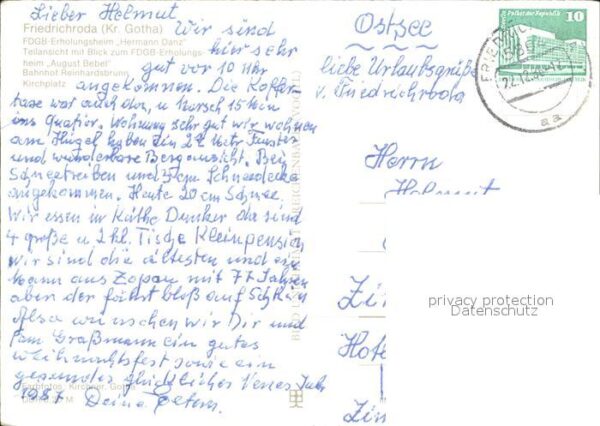 Lieber Helmut,
Friedrichroda (Kr. Gotha)
FDGB-Erholungsheim „Hermann Danz"
Teilansicht mit Blick zum FDGB-Erholungs-
heim „August Bebel"
Bahnhof Reinhardsbrunn
Kirchplatz
Wir sind
hier sehr
gut vor 10 Uhr
angekommen. Die Koffer
war auch da, u Marsch 15 Min
ins Quatier. Wohnung sehr gut wir wohnen
am Hügel haben ein Fenster
und wunderbare Bergansicht. Bei
Schneetreiben und Schneedecke
angekommen. Heute 20 cm Schnee.
Wir essen in Käthe Dunker da sind
4 große u 2 kl. Tische Kleinpension
wir sind die ältesten und ein
Mann aus Zopau mit 77 Jahren
aber der fährt bloß auf Schiern
Also wünschen wir Dir und
Fam Graßmann ein gutes
Weihnachtsfest sowie ein
gesundes glückliches Neues Jahr
1987 Deine Eltern.
Farbfotos: Kirchner, Gotha
Ostsee
liebe Urlaubsgrüße
v. Friedrichroda
Palast der Republik
10
Herrn
Helmut
privacy protection
Datenschutz